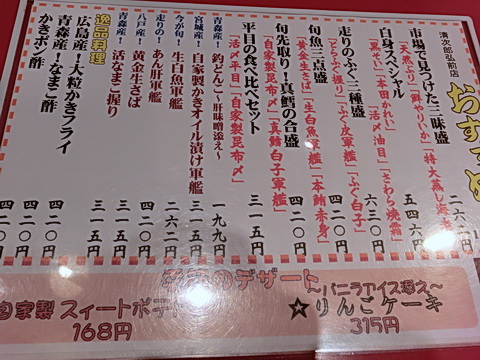 清次郎弘前店
おすすめ
市場で見つけた三昧盛
「天然ぶり」「鮮やりいか」「特大蒸し海老」
二六二円
白身スペシャル
「黒そい」「本田かれい」「活〆油目」「さわら焼霜」
五四六円
走りのふぐ三種盛
「とらふぐ握り」「ふぐ皮軍艦」「ふぐ白子」
六三〇円
旬魚三点盛
「黄金生さば」「生白魚軍艦」「本鮪赤身」
四二〇円
旬先取り!真鱈の合盛
「自家製昆布〆」「真鱈白子軍艦」
四二〇円
平目の食べ比べセット
「活〆平目」「自家製昆布〆」
三一五円
青森産!釣どんこ〜肝味噌添え〜
一九九円
宮城産!自家製かきオイル漬け軍艦
三一五円
今が旬!生白魚軍艦
二六二円
走りの!あん肝軍艦
四二〇円
八戸産!黄金生さば
三一五円
青森産!活なまこ握り
三一五円
逸品料理
広島産!大粒かきフライ
四二〇円
青森産!なまこ酢
四二〇円
かきポン酢
四二〇円
のデザート
自家製 スィートポテ
168円
〜バニラアイス添え〜
☆りんごケーキ
315円